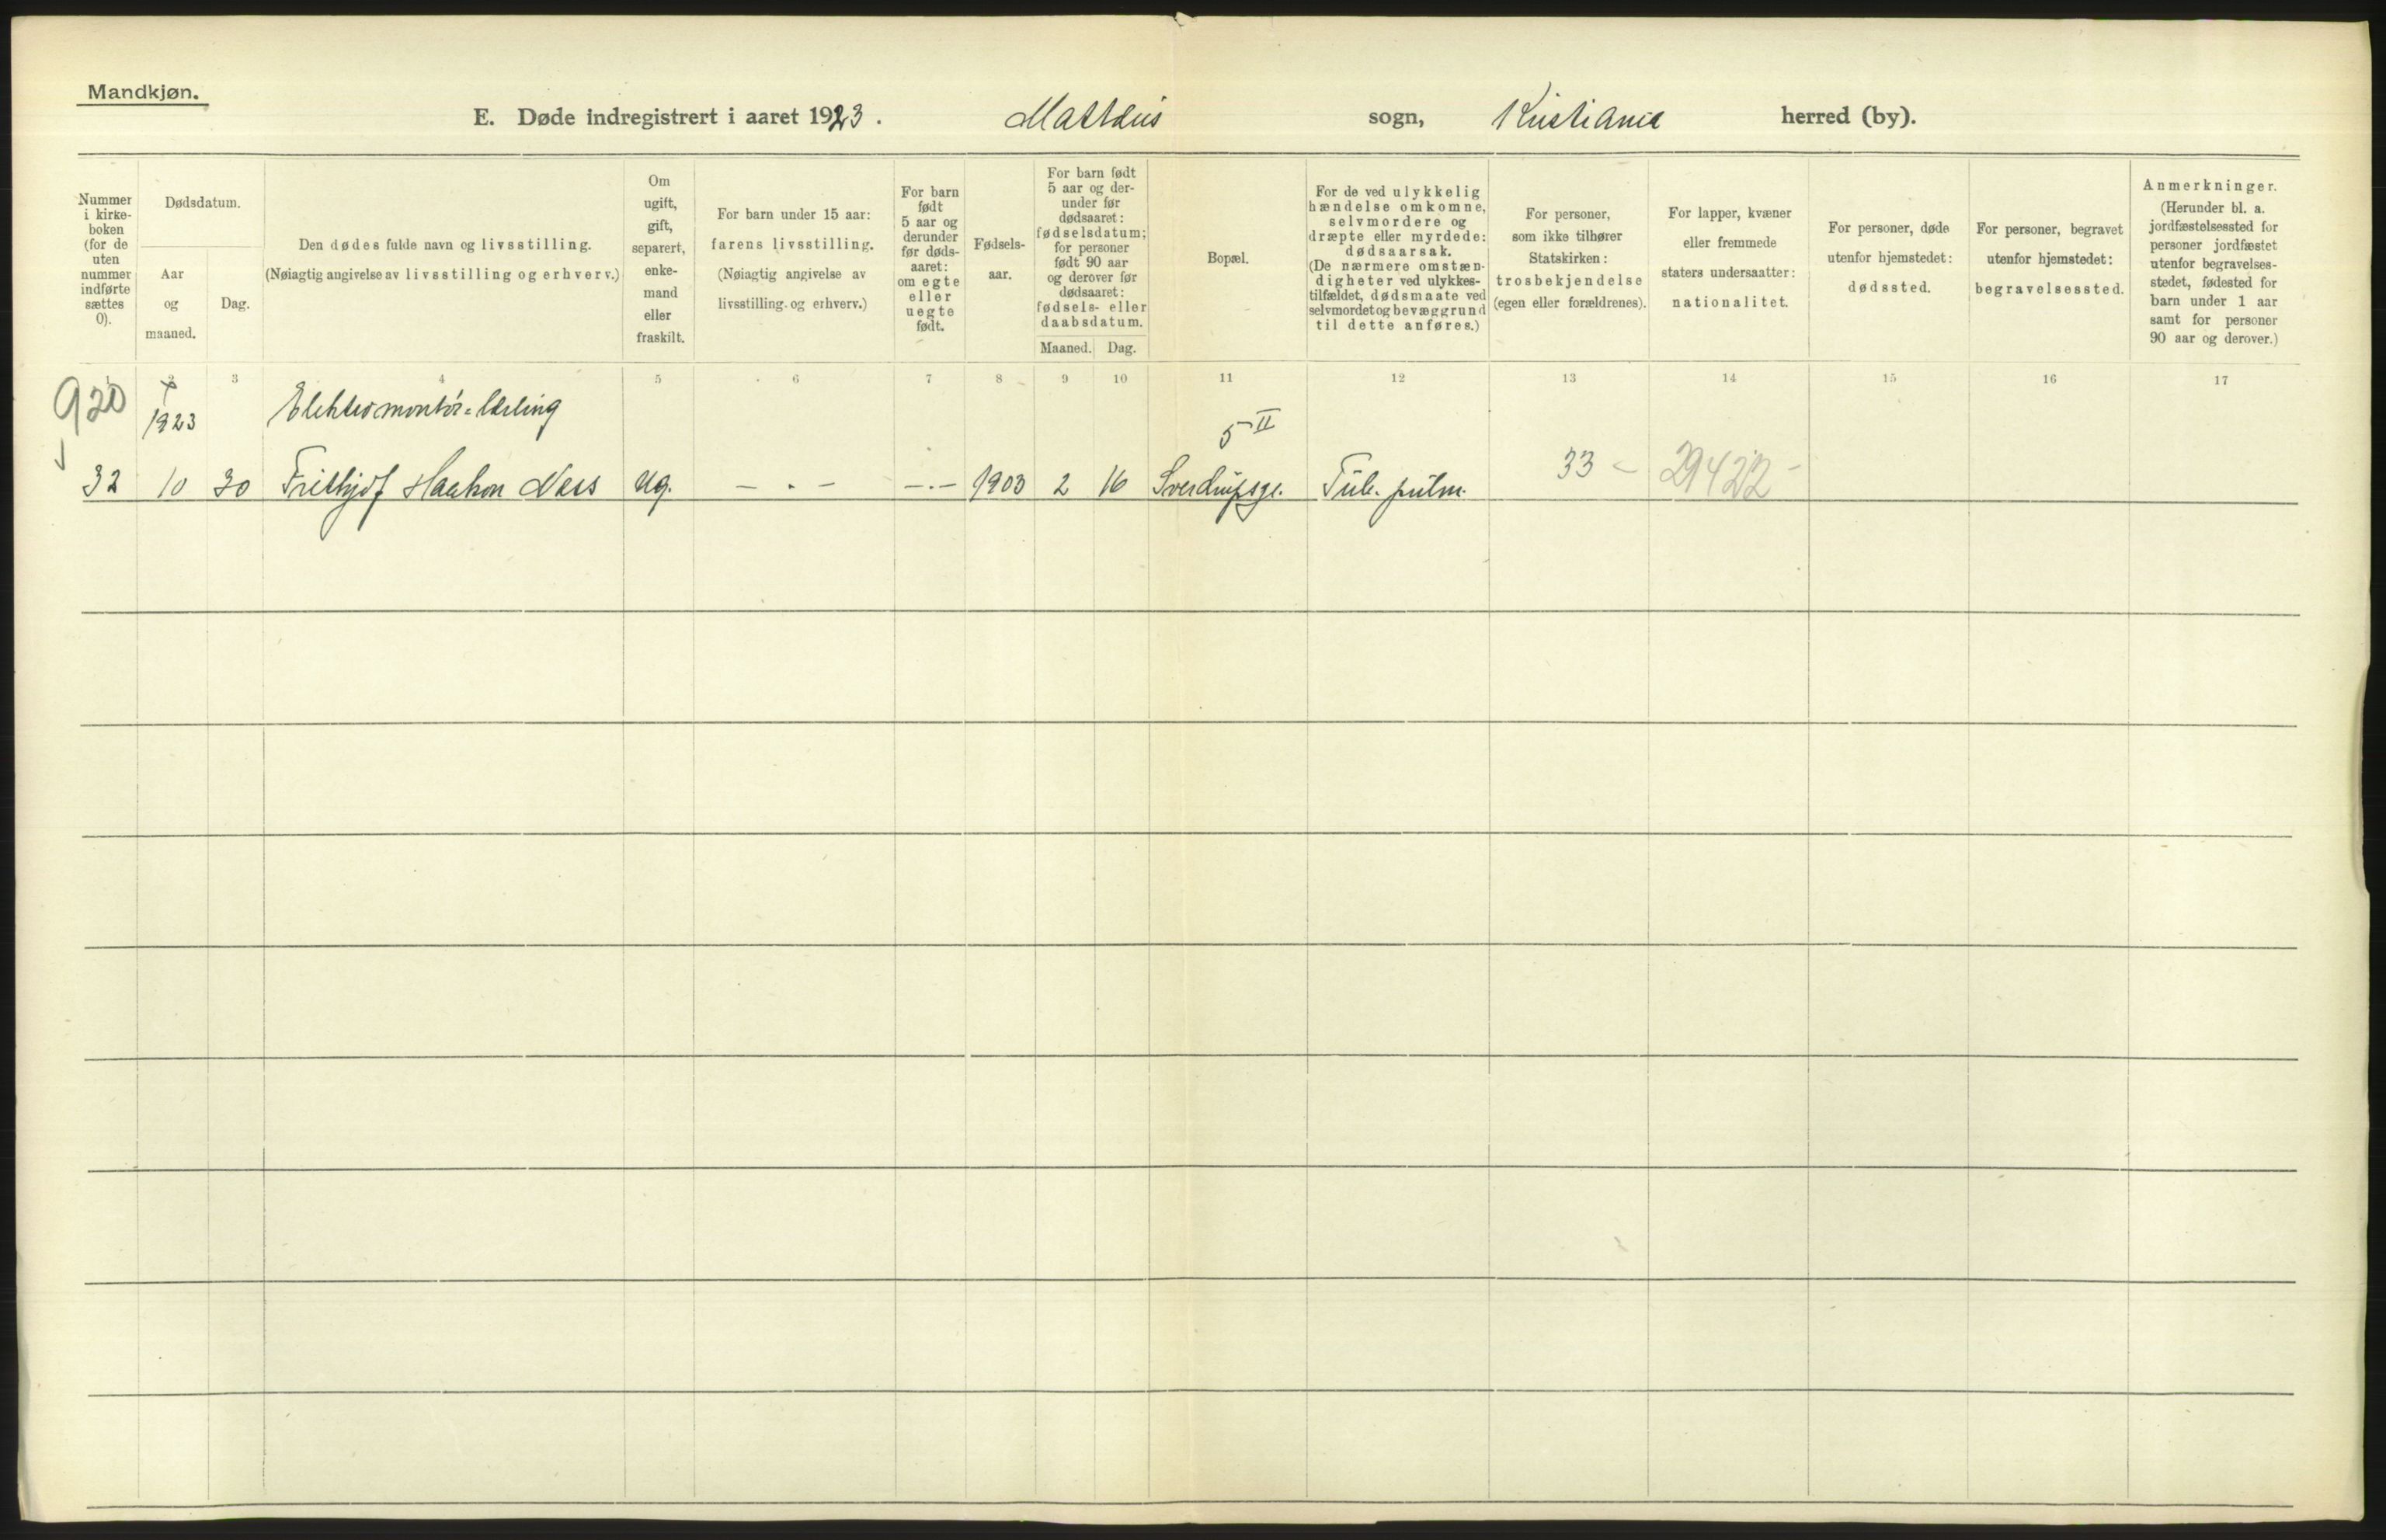 Mandkjøn.
E. Døde indregistrert i aaret 1923. Matthæus sogn, Kristiania herred (by).
Nummer i kirke- boken (for de uten nummer indførte sættes 0).
Dødsdatum.
Aar og maaned.
Dag.
Den dødes fulde navn og livsstilling.
(Nøiagtig angivelse av livsstilling og erhverv.)
Om ugift, gift, separert, enke- mand eller fraskilt.
For barn under 15 aar:
farens livsstilling.
(Nøiagtig angivelse av
livsstilling og erhverv.)
For barn født 5 aar og derunder før døds- aaret: om egte eller uegte født.
Fødsels- aar.
For barn født 5 aar og der- under før dødsaaret: fødselsdatum; for personer født 90 aar og derover før dødsaaret: fødsels- eller daabsdatum.
Maaned. Dag.
Bopæl.
For de ved ulykkelig hændelse omkomne, selvmordere og dræpte eller myrdede: dødsaarsak. (De nærmere omstæn- digheter ved ulykkes- tilfældet, dødsmaate ved selvmordet og bevæggrund til dette anføres.)
For personer, som ikke tilhører Statskirken: trosbekjendelse (egen eller forældrenes).
For lapper, kvæner eller fremmede staters undersaatter: nationalitet.
For personer, døde utenfor hjemstedet: dødssted.
For personer, begravet utenfor hjemstedet: begravelsessted.
Anmerkninger. (Herunder bl. a. jordfæstelsessted for personer jordfæstet utenfor begravelses- stedet, fødested for barn under 1 aar samt for personer 90 aar og derover.)
3 4 5 6 7 8 9 10 11 12 13 14 15 16 17
920 1923 Elektromontör-lærling 5 II
32 10 30 Frithjof Haakon Næss ug. — . — —.— 1903 2 16 Sverdrupsgt. Tub. pulm. 33 - 29422 -